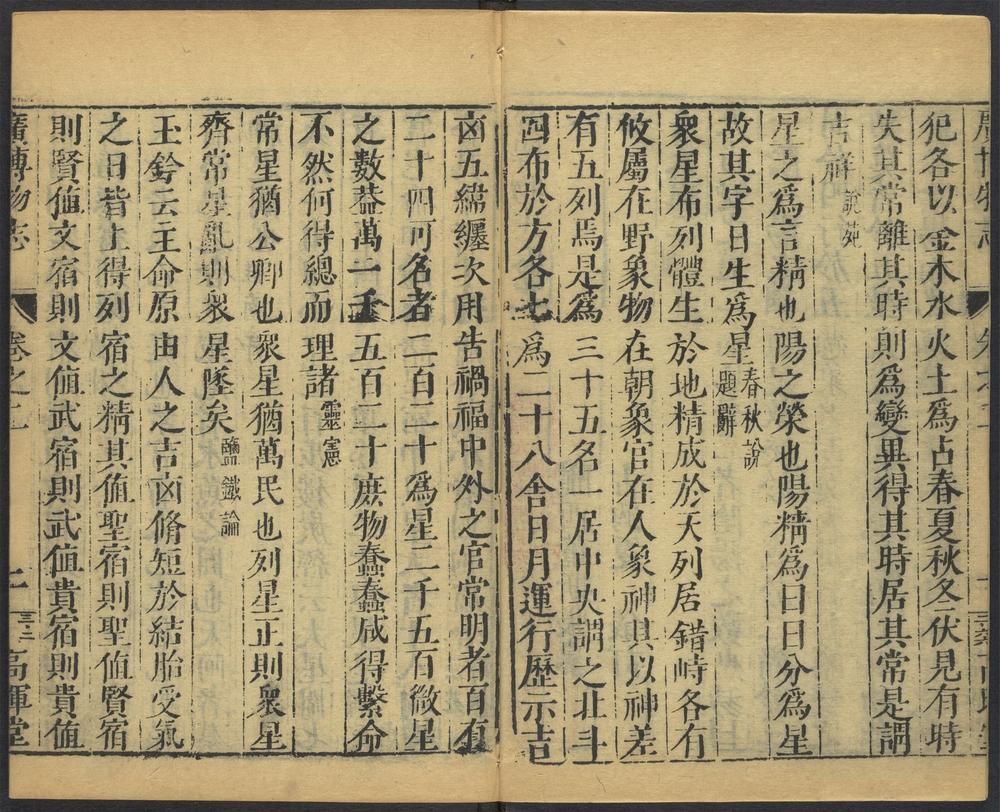 犯各以金木水火土爲占春夏秋冬伏見有時
失其常離其時則爲變異得其時居其常是謂
吉祥說苑
星之爲言精也陽之榮也陽精爲日日分爲星
故其字日生爲星春秋說題辭
衆星布列體生於地精成於天列居錯峙各有
攸屬在野象物在朝象官在人象神其以神差
有五列焉是爲三十五名一居中央謂之北斗
四布於方各七爲二十八舍日月運行歷示吉
凶五緯纏次用告禍福中外之官常明者百有
二十四可名者二百二十爲星二千五百微星
之數葢萬一千五百二十庶物蠢蠢咸得繫命
不然何得總而理諸靈憲
常星猶公卿也衆星猶萬民也列星正則衆星
齊常星亂則衆星墜矣鹽鐵論
玉鈐云主命原由人之吉凶脩短於結胎受氣
之日皆上得列宿之精其值聖宿則聖值賢宿
則賢值文宿則文值武宿則武值貴宿則貴值
廣博物志 卷之二 二 高暉堂